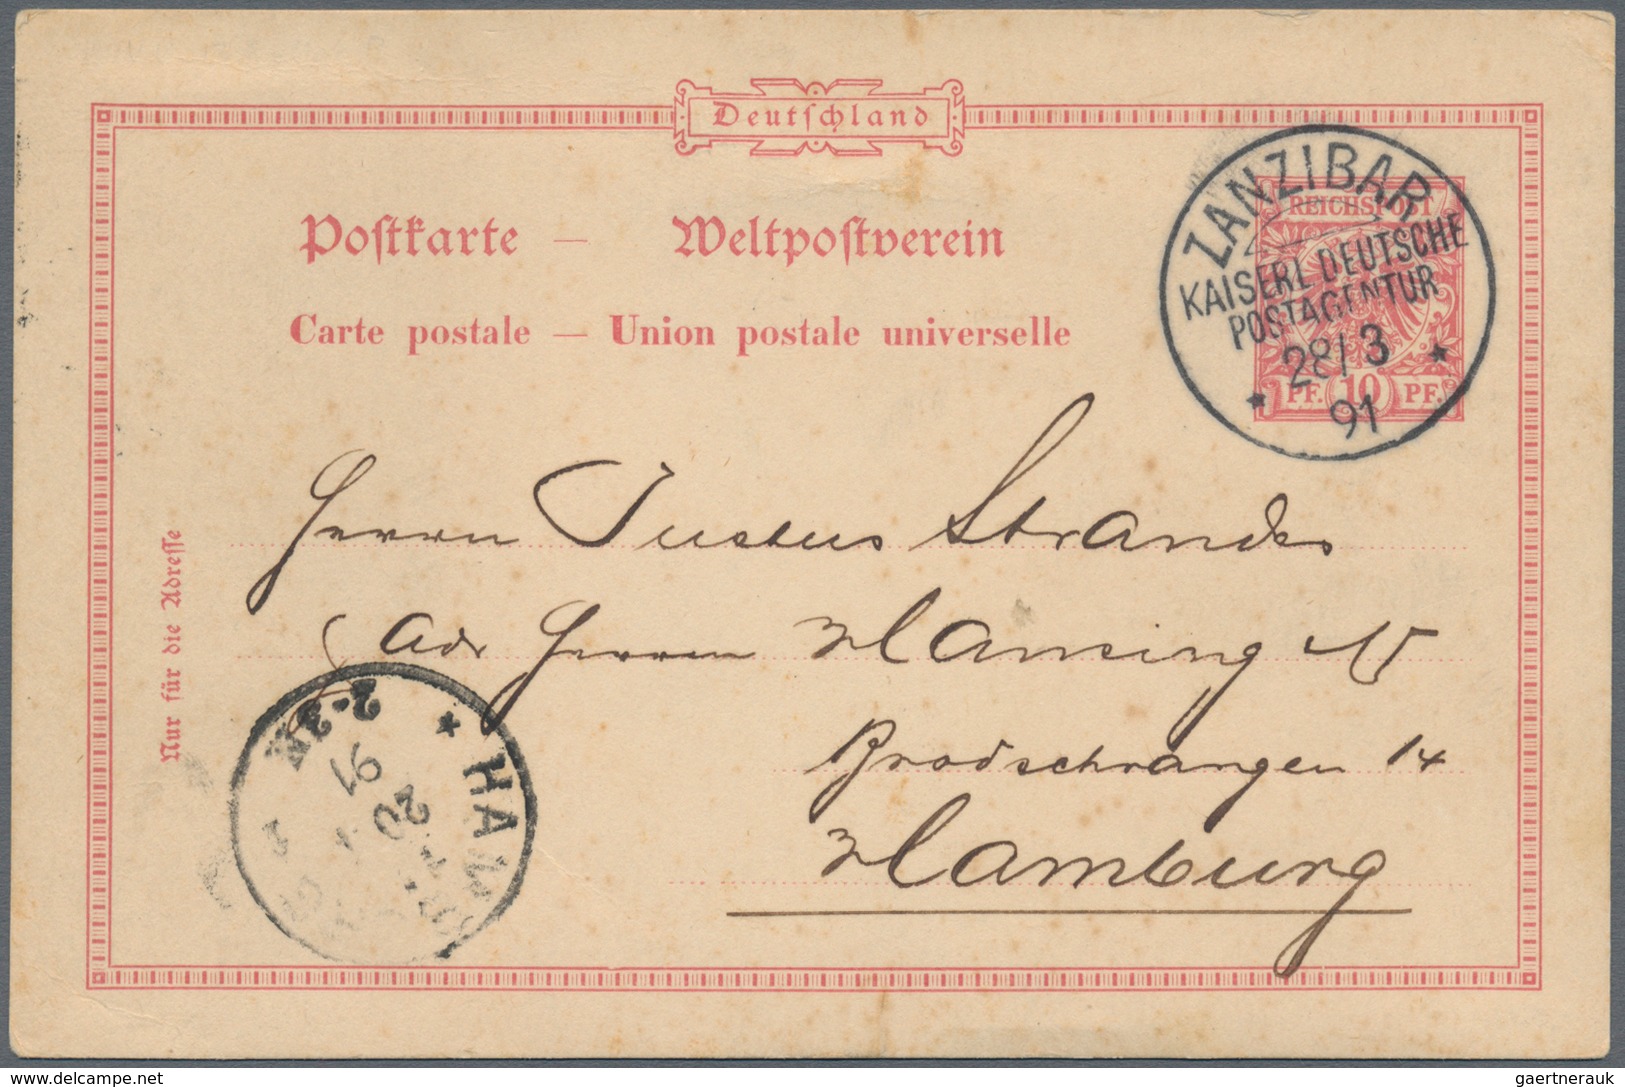 Deutschland
Postkarte — Weltpostverein
Carte postale — Union postale universelle
REICHSPOST
PF. 10 PF.
ZANZIBAR
KAISERL DEUTSCHE
POSTAGENTUR
28/3
91
Herrn Justus Strandes
adr Herren Hansing
Brodschrangen 14
Hamburg
Nur für die Adresse
HAMBURG
20
91
2-3N
delcampe.net
gaertnerauk